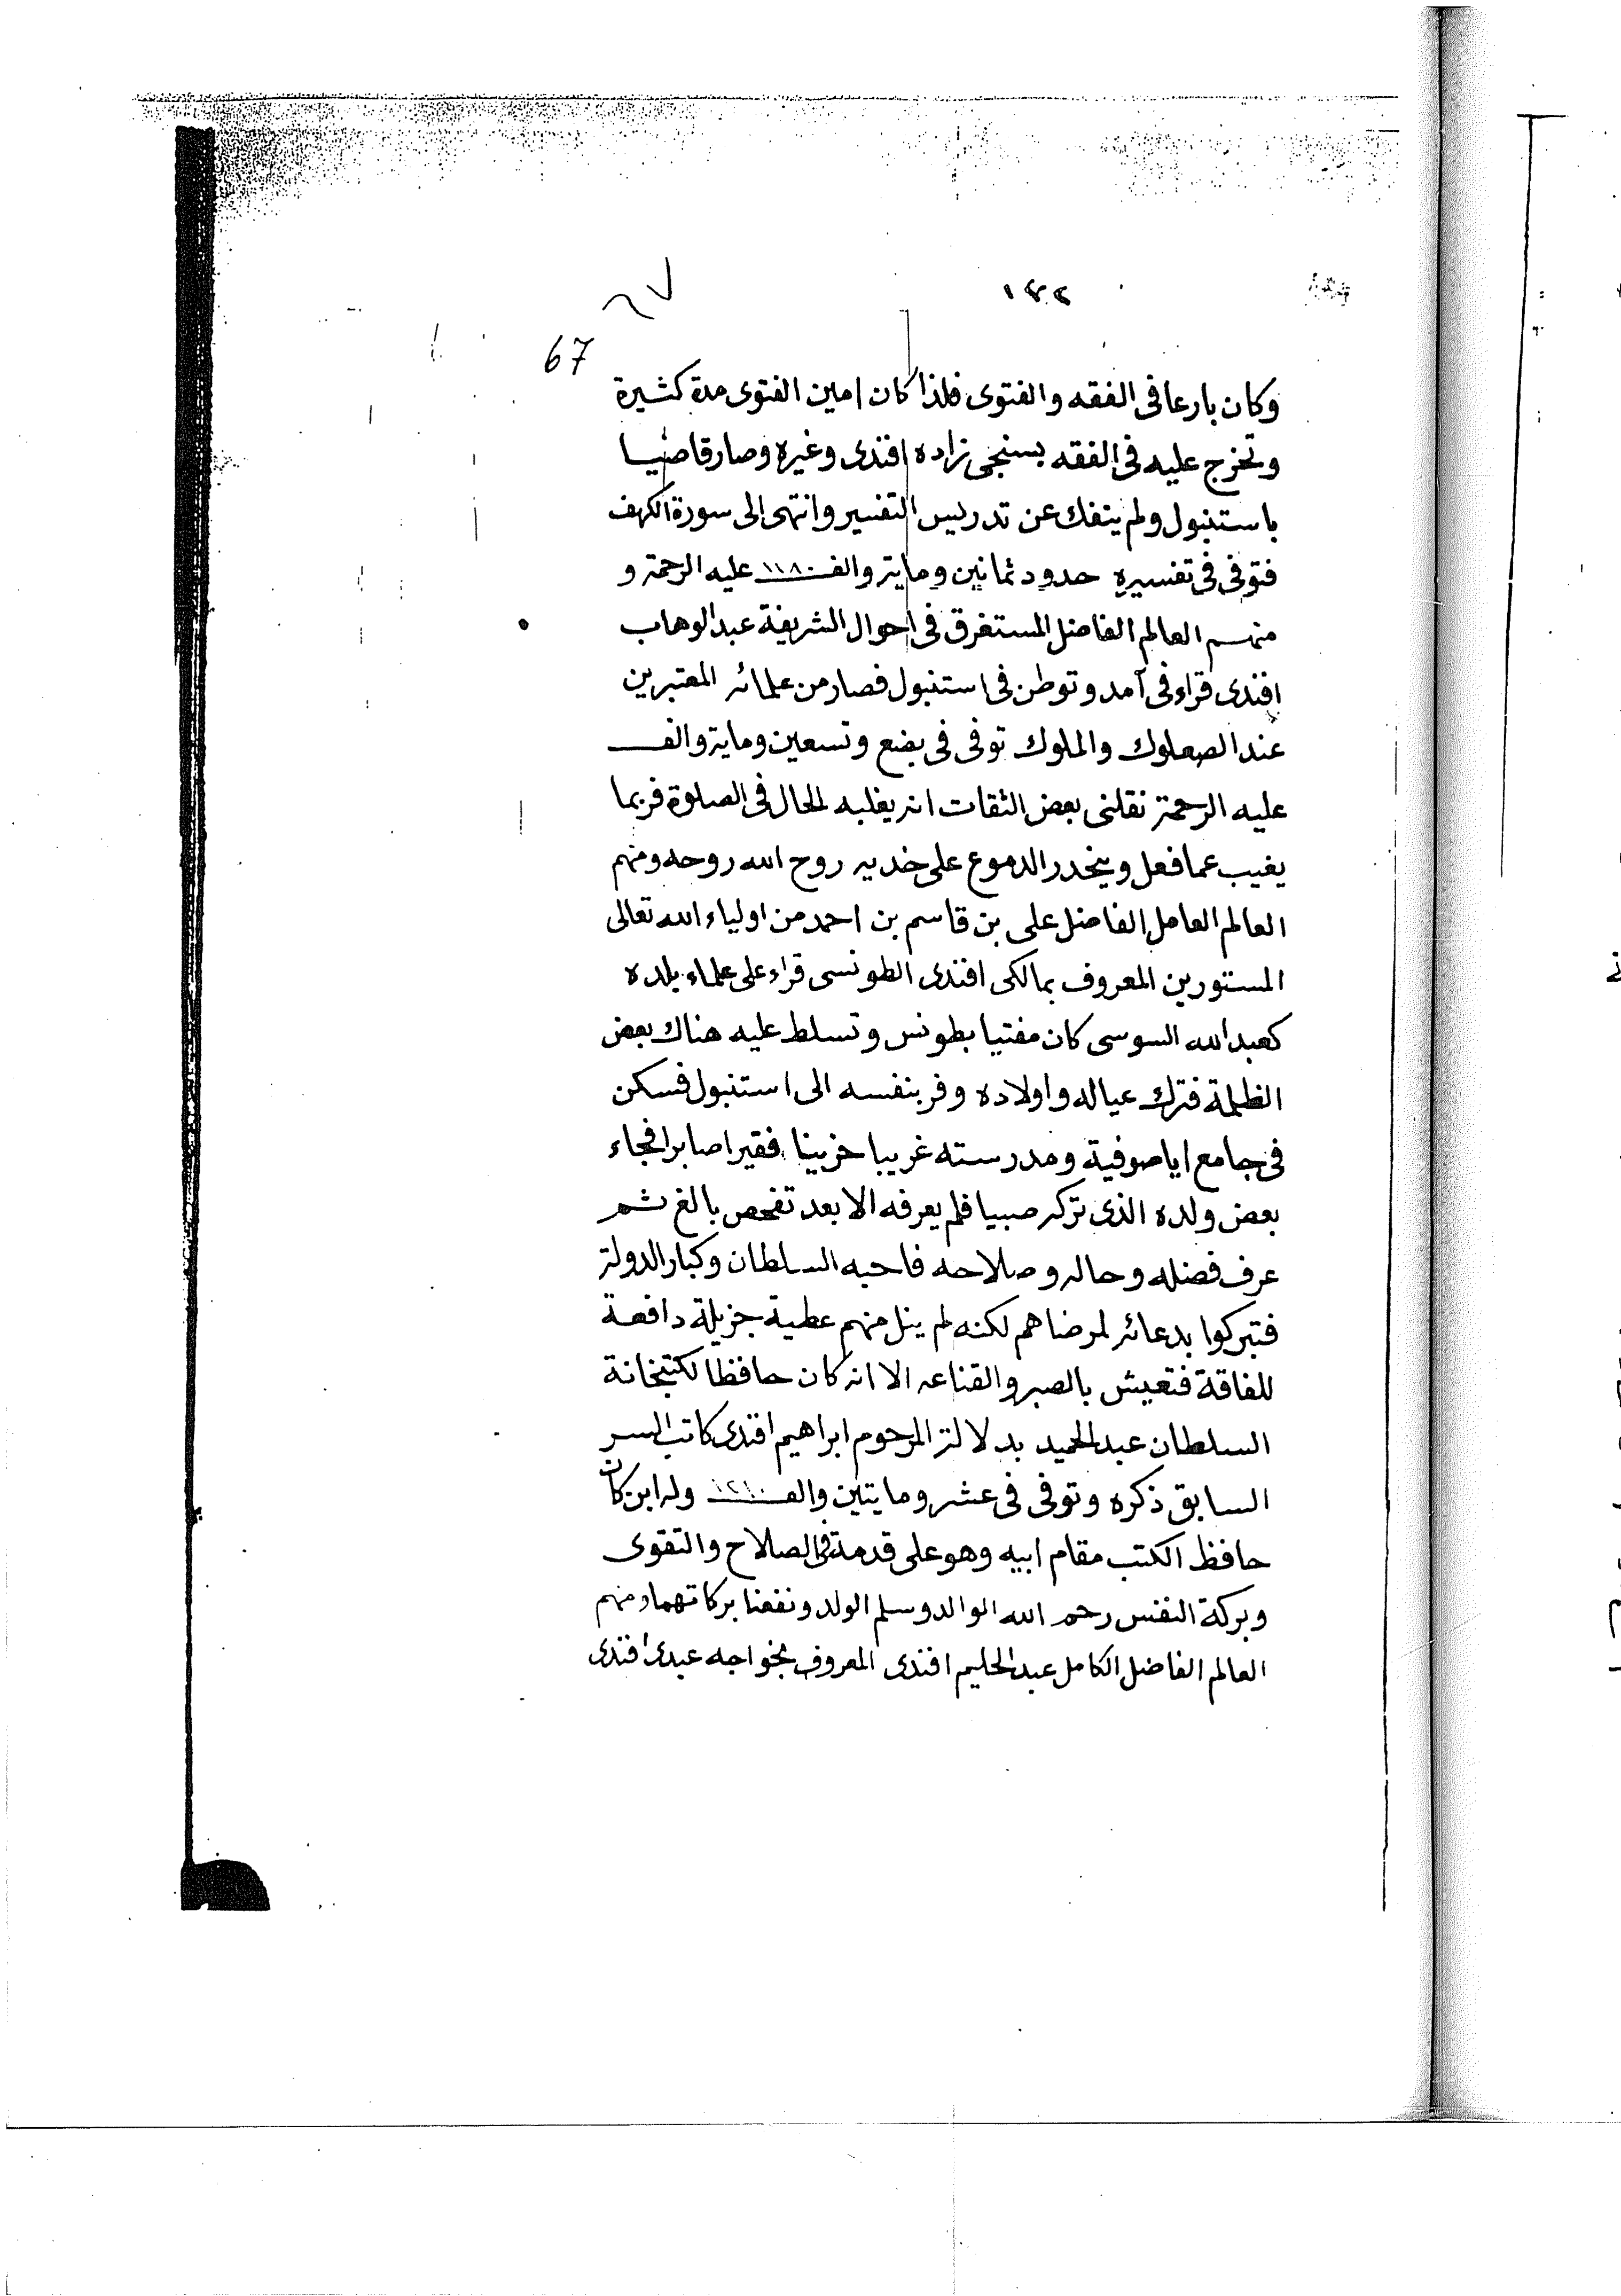 ٦٧
67
وكان بارعا فى الفقه والفتوى فلذا كان امين الفتوى مدة كثيرة
وتخرج عليه فى الفقه بسنجى زاده افندى وغيره وصار قاضيا
باستنبول ولم ينفك عن تدريس التفسير وانتهى الى سورة الكهف
فتوفى فى تفسيره حدود ثمانين وماية والف ١١٨٠ عليه الرحمة و
منهم العالم الفاضل المستغرق فى احوال الشريفة عبد الوهاب
افندى قراء فى آمد وتوطن فى استنبول فصار من علمائه المعتبرين
عند الصعلوك والملوك توفى فى بضع وتسعين وماية والف
عليه الرحمة نقلنى بعض الثقات انه يغلبه الحال فى الصلوة فربما
يغيب عما فعل وينحدر الدموع على خديه روح الله روحه ومنهم
العالم العامل الفاضل على بن قاسم بن احمد من اولياء الله تعالى
المستورين المعروف بمالكى افندى الطونسى قراء على علماء بلده
كعبد الله السوسى كان مفتيا بطونس وتسلط عليه هناك بعض
الظلمة فترك عياله واولاده وفر بنفسه الى استنبول فسكن
فى جامع اياصوفية ومدرسته غريبا حزينا فقيرا صابرا فجاء
بعض ولده الذى تركه صبيا فلم يعرفه الا بعد تفحص بالغ ثم
عرف فضله وحاله وصلاحه فاحبه السلطان وكبار الدولة
فتبركوا بدعائه لمرضاهم لكنه لم ينل منهم عطية جزيلة دافعة
للفاقة فتعيش بالصبر والقناعه الا انه كان حافظا لكتبخانة
السلطان عبد الحميد بدلالة المرحوم ابراهيم افندى كاتب السر
السابق ذكره وتوفى فى عشر ومايتين والف ١٢١٠ وله ابن كان
حافظ الكتب مقام ابيه وهو على قدمة فى الصلاح والتقوى
وبركة النفس رحم الله الوالد وسلم الولد ونفعنا بركاتهما ومنهم
العالم الفاضل الكامل عبد الحليم افندى المعروف بخواجه عبدى افندى